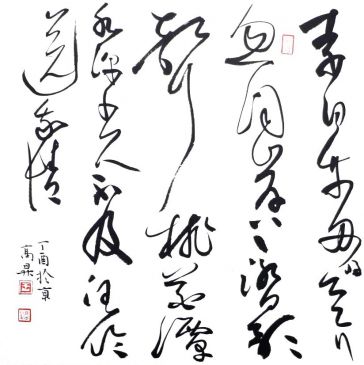 李白乘舟將欲行
忽聞岸上踏歌
聲桃花潭
水深千尺不及汪倫
送我情
丁酉於京
高